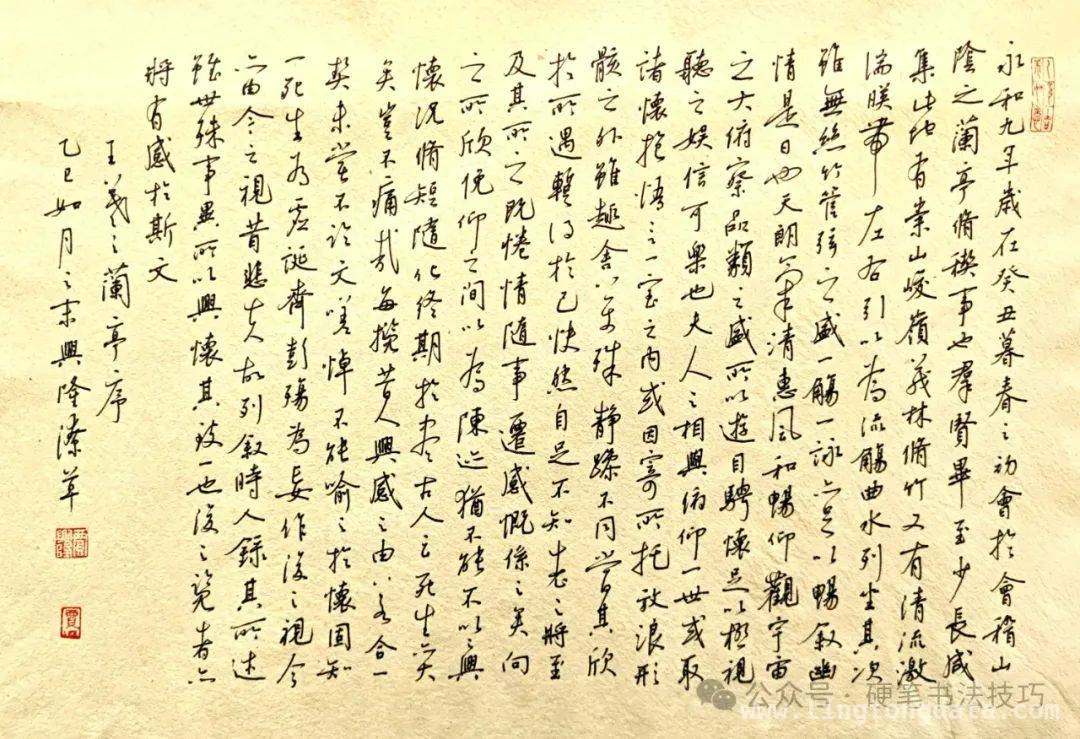 永和九年歲在癸丑暮春之初會於會稽山
陰之蘭亭脩稧事也羣賢畢至少長咸
集此地有崇山峻嶺茂林脩竹又有清流激
湍暎帶左右引以為流觴曲水列坐其次
雖無絲竹管弦之盛一觴一詠亦足以暢叙幽
情是日也天朗氣清惠風和暢仰觀宇宙
之大俯察品類之盛所以遊目騁懷足以極視
聽之娛信可樂也夫人之相與俯仰一世或取
諸懷抱悟言一室之內或因寄所托放浪形
骸之外雖趣舍萬殊靜躁不同當其欣
於所遇暫得於己快然自足不知老之將至
及其所之既惓情隨事遷感慨係之矣向
之所欣俛仰之間以為陳迹猶不能不以之興
懷況脩短隨化終期於盡古人云死生亦大
矣豈不痛哉每攬昔人興感之由若合一
契未嘗不臨文嗟悼不能喻之於懷固知
一死生為虛誕齊彭殤為妄作後之視今
亦由今之視昔悲夫故列叙時人錄其所述
雖世殊事異所以興懷其致一也後之覽者亦
將有感於斯文
王羲之蘭亭序
乙巳如月之末興隆潦草
公众号·硬笔书法技巧
www.lingtongdata.com